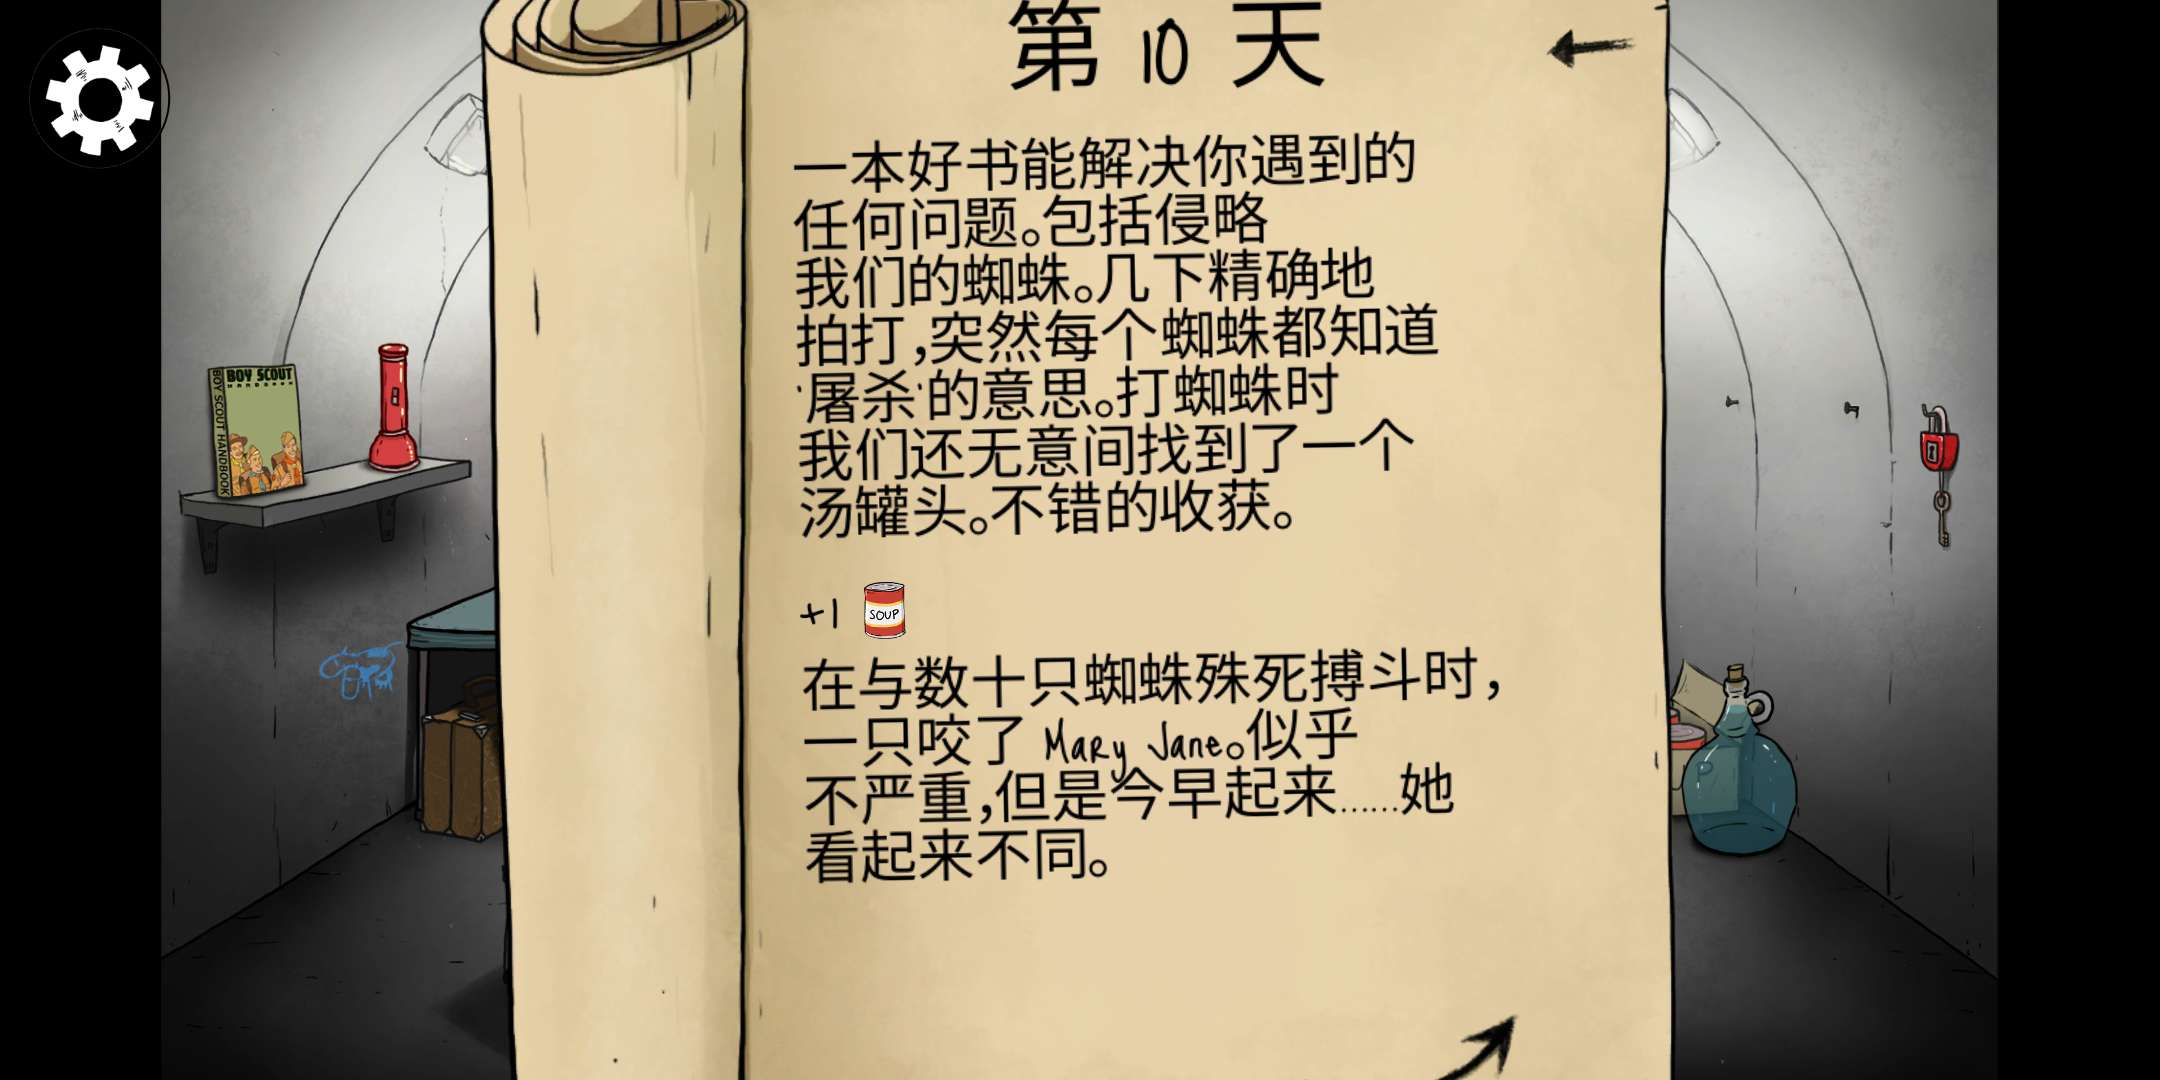 第 10 天
一本好书能解决你遇到的
任何问题。包括侵略
我们的蜘蛛。几下精确地
拍打,突然每个蜘蛛都知道
'屠杀'的意思。打蜘蛛时
我们还无意间找到了一个
汤罐头。不错的收获。
+1 SOUP
在与数十只蜘蛛殊死搏斗时，
一只咬了 Mary Jane。似乎
不严重,但是今早起来……她
看起来不同。
BOY SCOUT
HANDBOOK
BOY SCOUT HANDBOOK